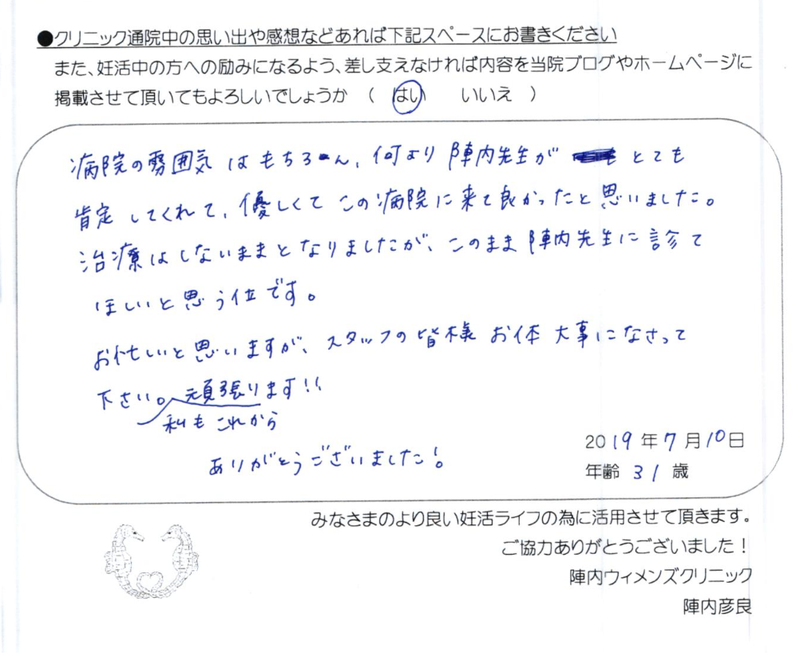 ●クリニック通院中の思い出や感想などあれば下記スペースにお書きください
また、妊活中の方への励みになるよう、差し支えなければ内容を当院ブログやホームページに
掲載させて頂いてもよろしいでしょうか （ はい いいえ ）
病院の雰囲気はもちろん、何より陣内先生が とても
肯定してくれて、優しくてこの病院に来て良かったと思いました。
治療はしないままとなりましたが、このまま陣内先生に診て
ほしいと思う位です。
お忙しいと思いますが、スタッフの皆様お体大事になさって
下さい。頑張ります!!
私もこれから
ありがとうございました!
2019年7月10日
年齢 31 歳
みなさまのより良い妊活ライフの為に活用させて頂きます。
ご協力ありがとうございました！
陣内ウィメンズクリニック
陣内彦良